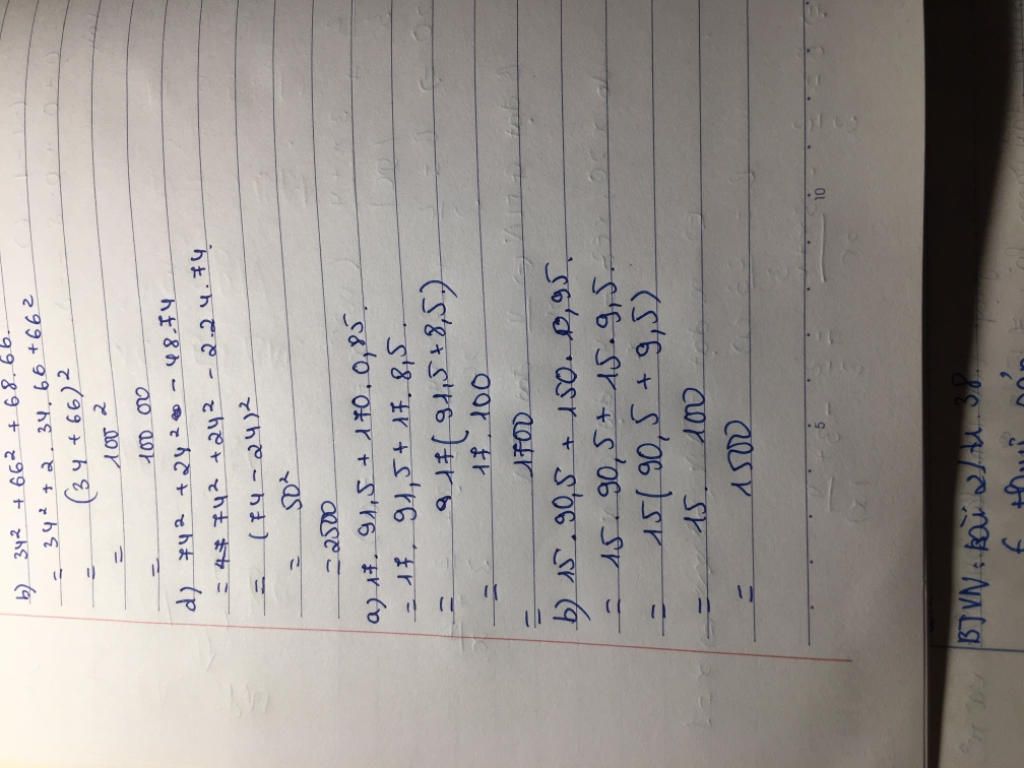 b) 34² + 66² + 68.66.
= 34² + 2.34.66 + 66²
= (34 + 66)²
= 100²
= 100 00
d) 74² + 24² - 48.74
= 74² + 24² - 2.24.74.
= (74 - 24)²
= 50²
= 2500
a) 17. 91,5 + 170.0,85.
= 17. 91,5 + 17.8,5.
= 17(91,5 + 8,5)
= 17.100
= 1700
b) 15.90,5 + 150.0,95.
= 15.90,5 + 15.9,5.
= 15(90,5 + 9,5)
= 15. 100
= 1500
5 10
BTVN: bài 21